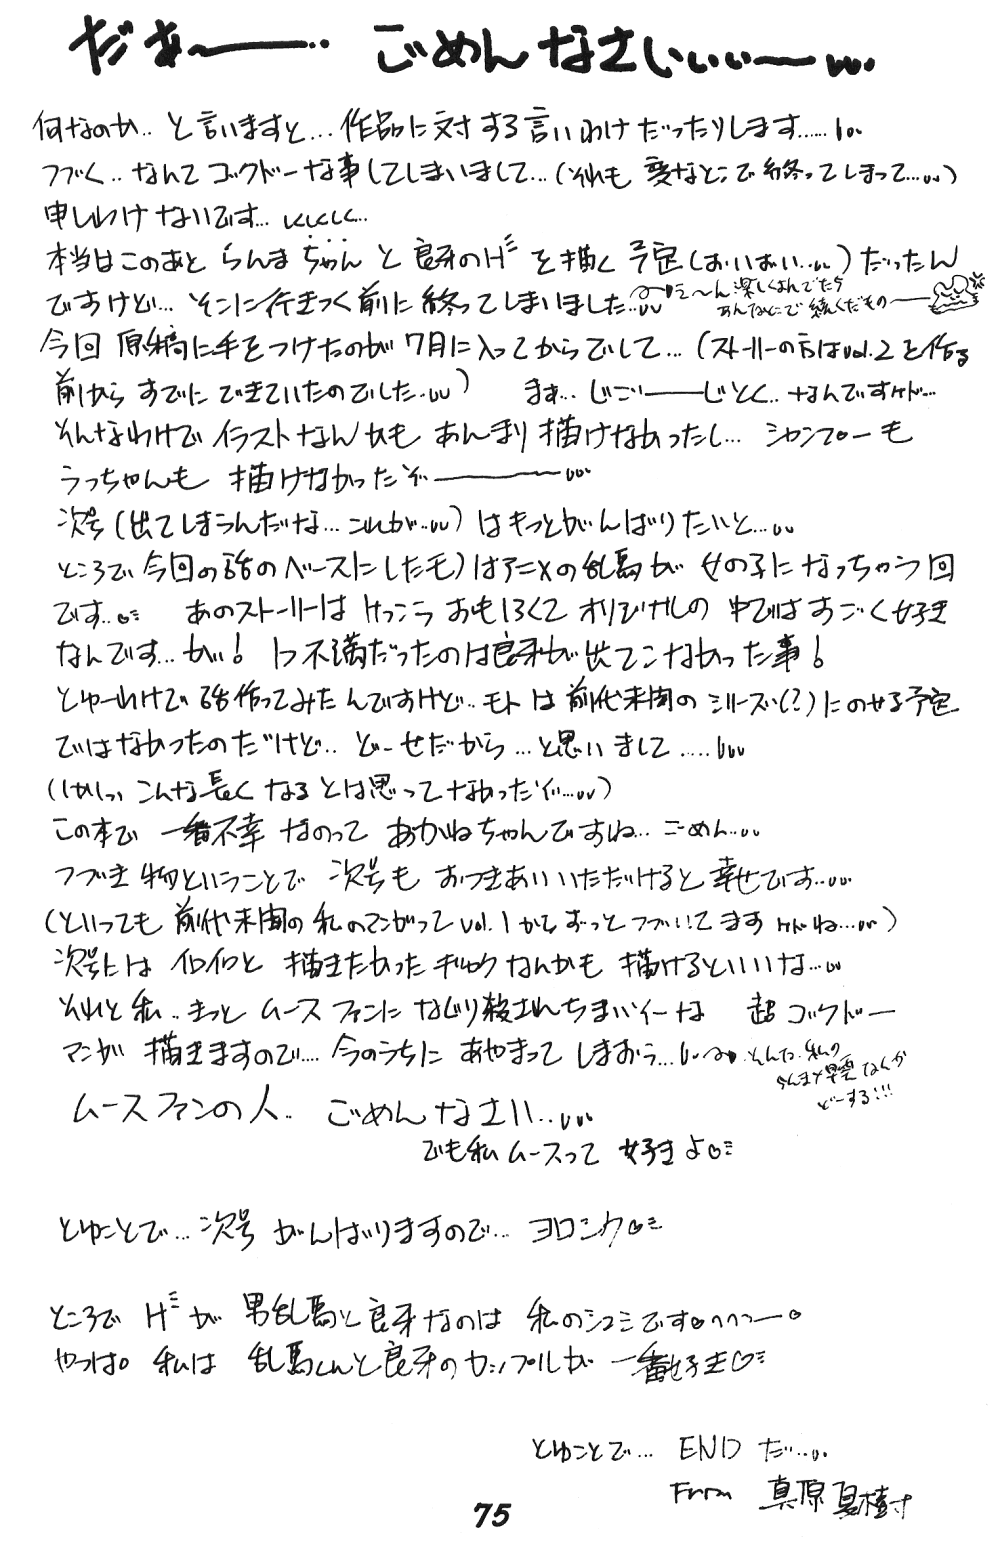 だぁー‥ ごめんなさいぃぃー…
何なのか‥と言いますと…作品に対する言いわけだったりします……
つづく‥なんてゴクドーな事してしまいまして…(それも変なとこで終ってしまって…)
申しわけないです…しくしく…
本当はこのあと らんまちゃんと良牙のHを描く予定(おいおい…)だったん
ですけど…そこに行きつく前に終ってしまいました…
え〜ん 楽しくよんでたら
あんなとこで続くだもの――
今回 原稿に手をつけたのが7月に入ってからでして…(ストーリーの方はvol.2を作る
前からすでにできていたのでした…) まぁ…じごーーじとく‥なんですけど…
そんなわけでイラストなんかもあんまり描けなかったし…シャンプーも
うっちゃんも描けなかったぞ――…
次号(出てしまうんだな…これが…)はきっとがんばりたいと…
ところで今回の話のベースにしたモノはアニメの乱馬が女の子になっちゃう回
です‥ あのストーリーはけっこうおもしろくてオリジナルの中ではすごく好き
なんです…が! 1つ不満だったのは良牙が出てこなかった事!
とゆーわけで話作ってみたんですけど‥モトは前代未聞のシリーズ(?)にのせる予定
ではなかったのだけど‥どーせだから…と思いまして……
(しかしっ こんな長くなるとは思ってなかったぞ…)
この本で一番不幸なのってあかねちゃんですね…ごめん…
つづき物ということで 次号もおつきあいいただけると幸せです…
(といっても前代未聞の私のマンガってvol.1からずっとつづいてますけどね…)
次号には イロイロと描きたかったギャグなんかも描けるといいな…
それと私‥きっとムースファンになじり殺されちまいそーな 超ゴクドー
マンガ描きますので…今のうちにあやまってしまおう…
そんな 私の
らんま×早雲なんか
どーする!!!
ムースファンの人‥ ごめんなさい…
でも私ムースって好きよ♡
とゆことで…次号がんばりますので…ヨロシク♡
ところでHが男乱馬と良牙なのは 私のシュミです。へへっー。
やっぱ。私は 乱馬くんと良牙のカップルが一番好き♡
とゆことで… ENDだ…
From 真原夏樹
75